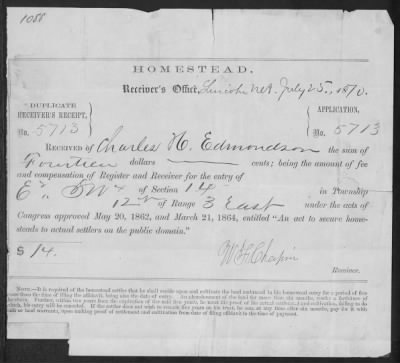 1088
HOMESTEAD.
Receiver's Office, Lincoln Neb. July 25, 1870.
DUPLICATE
RECEIVER'S RECEIPT,
No. 5713
APPLICATION,
No. 5713
RECEIVED OF Charles H. Edmondson the sum of
Fourteen dollars cents; being the amount of fee
and compensation of Register and Receiver for the entry of
E½ SW¼ of Section 14 in Township
12 N of Range 3 East under the acts of
Congress approved May 20, 1862, and March 21, 1864, entitled "An act to secure home-
steads to actual settlers on the public domain."
$ 14.
W H Chapin
Receiver.
NOTE.—It is required of the homestead settler that he shall reside upon and cultivate the land embraced in his homestead entry for a period of five
years from the time of filing the affidavit, being also the date of entry. An abandonment of the land for more than six months works a forfeiture of